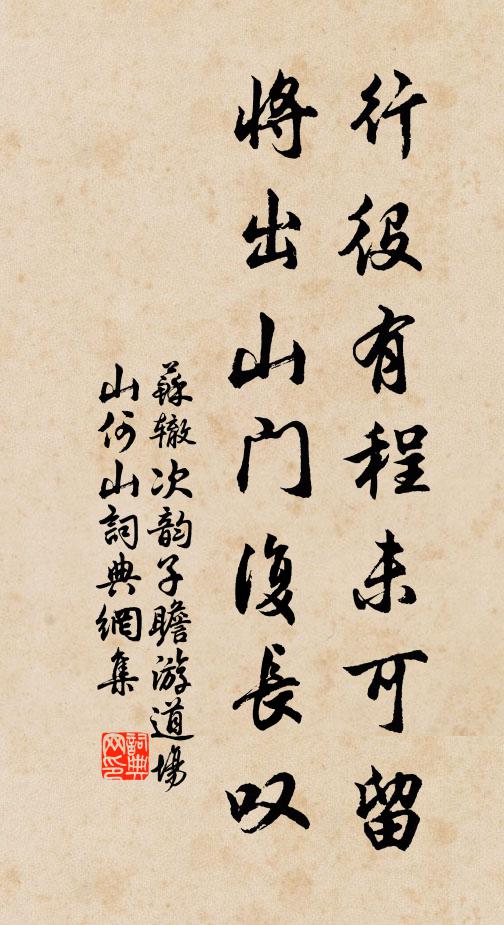 行役有程未可留
將出山门復長叹
蘇辙次韵子瞻游道場
山何山詞典網集
詞典
网印